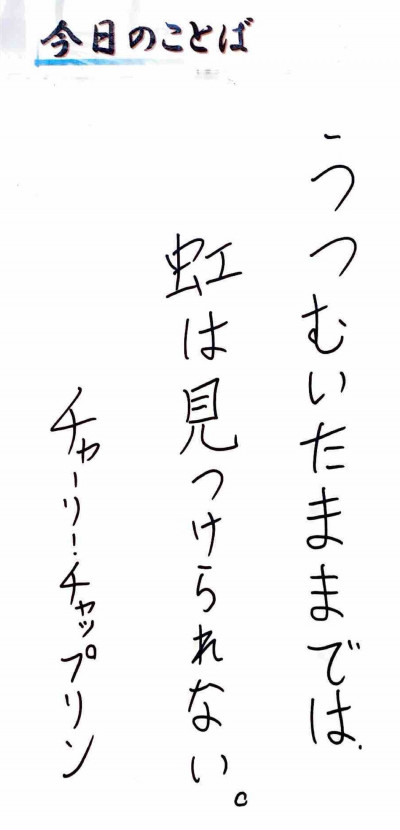 今日のことば
うつむいたままでは、
虹は見つけられない。
チャーリー・チャップリン